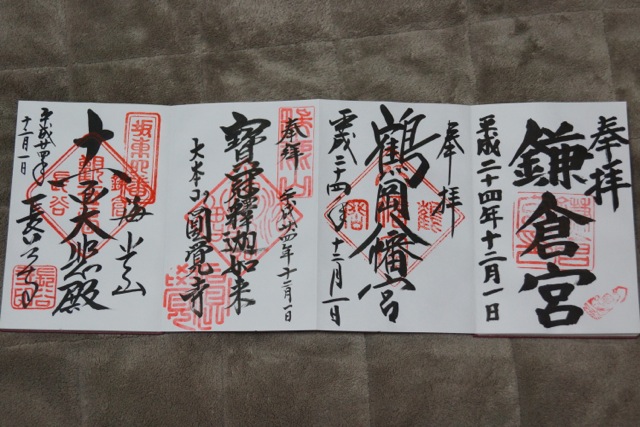 奉拝
鎌倉宮
平成二十四年十二月一日
奉拝
鶴岡八幡宮
平成二十四年十二月一日
奉拝
平成廿四年十二月一日
寶冠釋迦如来
大本山 圓覺寺
坂東四番
海光山
十一面大悲殿
長谷寺
平成廿四年
十二月一日